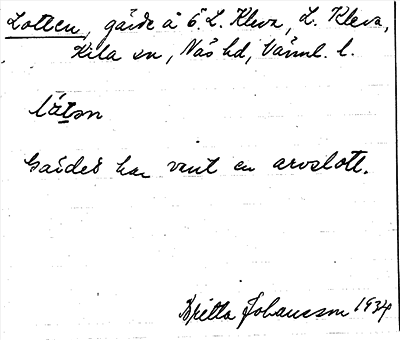 Lotten, gärde å Ö. L. Kleva, L. Kleva,
Kila sn, Näs hd, Värml. l.
låtən
Gärdet har varit en arvslott.
Britta Johansson 1934